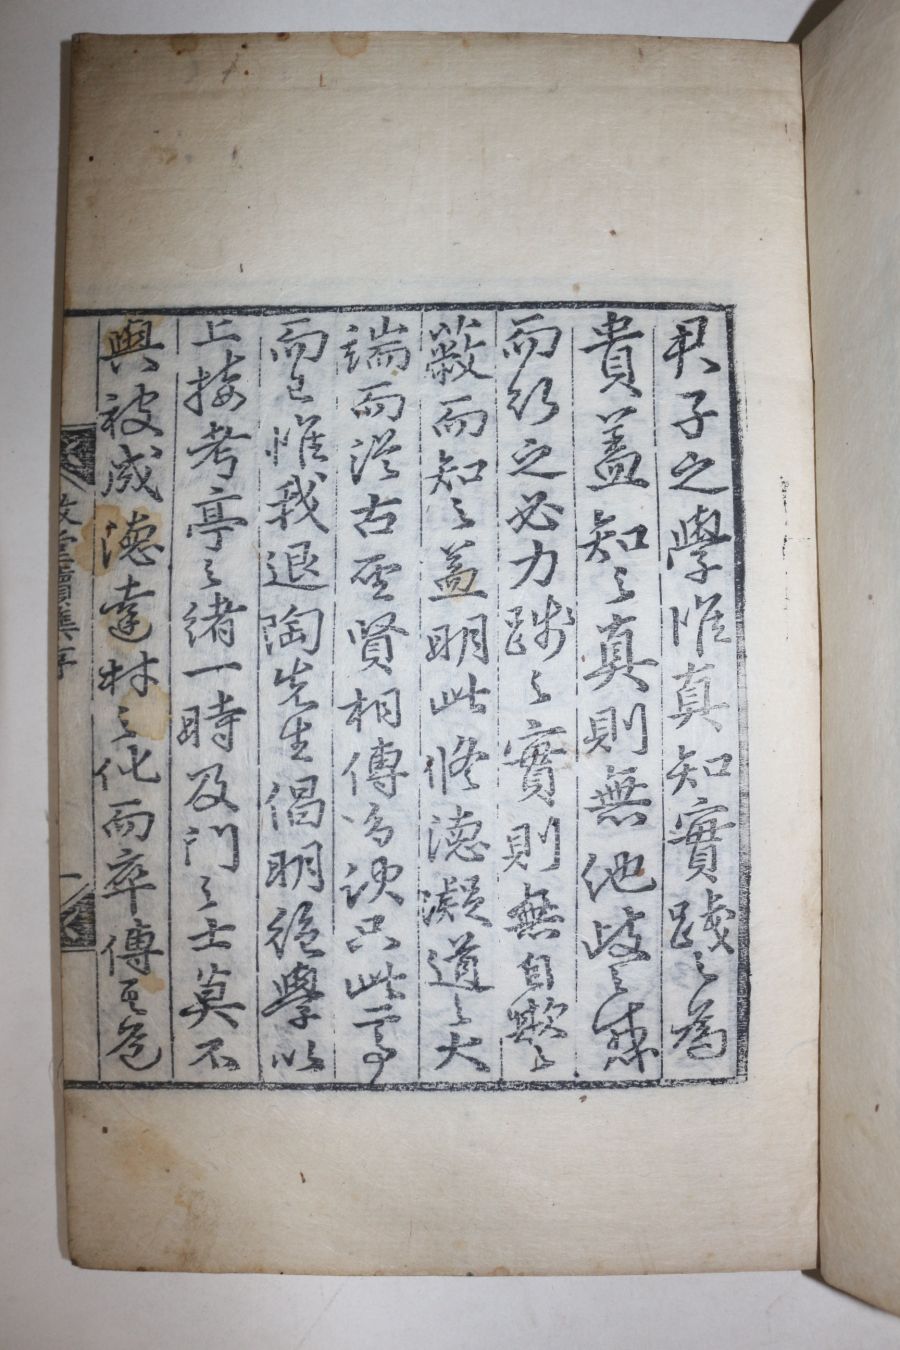 君子之學惟真知實踐之爲
貴蓋知之真則無他歧之惑
而行之必力踐之實則無自欺之
蔽而知之益明此脩德凝道之大
端而從古聖賢相傳旨訣只此事
而已惟我退陶先生倡明絶學以
上接考亭之緒一時及門之士莫不
與被成德達材之化而卒傳其
堂續集序
一